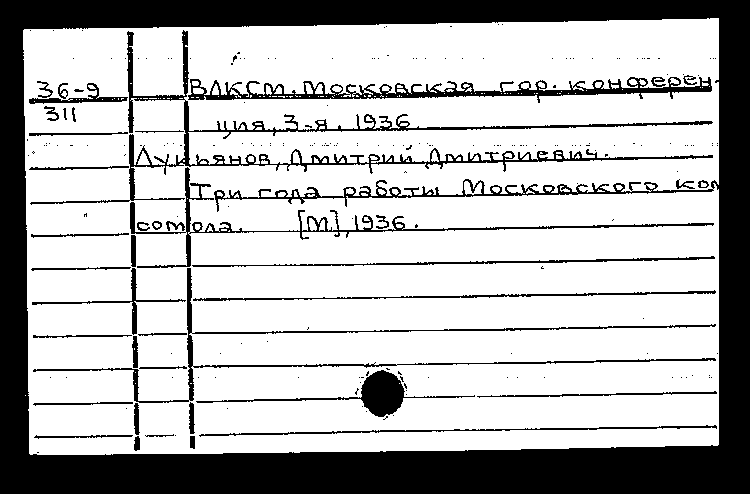 36-9 ВЛКСМ. Московская гор. конферен-
311
ция, 3-я. 1936.
Лукьянов, Дмитрий Дмитриевич.
Три года работы Московского ком
сомола. [М], 1936.